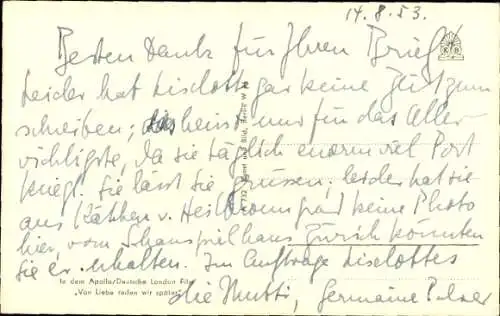 14.8.53.
Besten Dank für Ihren Brief
leider hat Liselotte gar keine Zeit zum
schreiben; scheinst nur für das Aller
wichtigste, da sie täglich enorm viel Post
kriegt. Sie lässt Sie grüssen; leider hat sie
aus Käthchen v. Heilbronn grad keine Photo
hier, vom Schauspielhaus Zürich könnten
Sie er. erhalten. Im Auftrage Liselottes
In dem Apollo/Deutsche London Film
"Von Liebe reden wir später"
die Mutti, Germaine Pulver